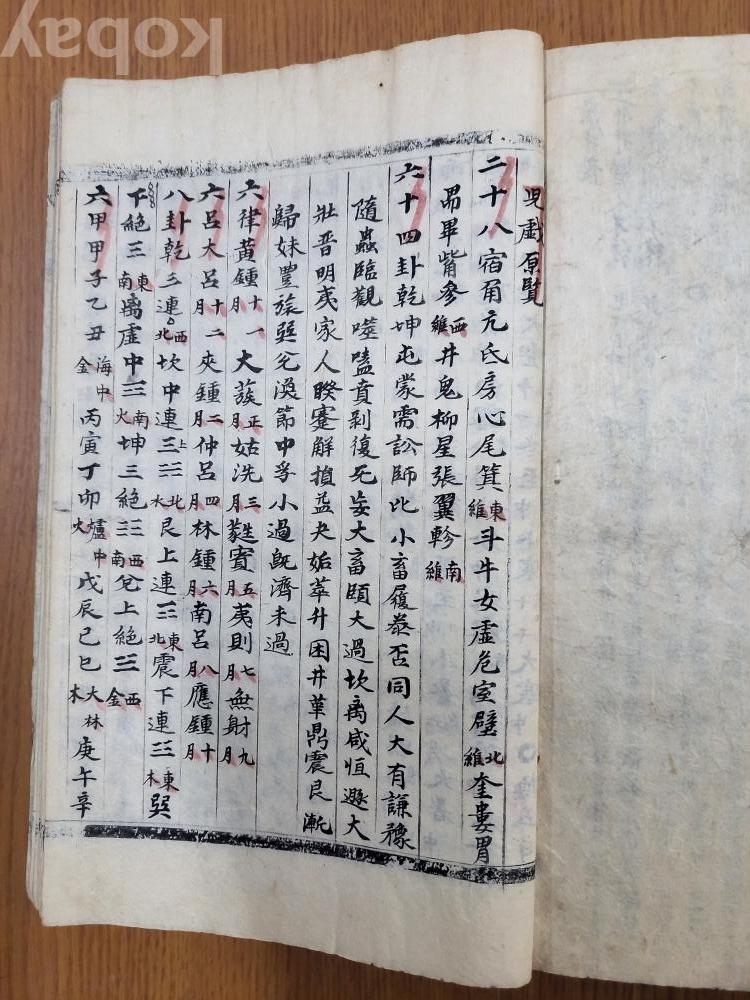 kobay
兒戱原覽
二十八宿角亢氐房心尾箕東維斗牛女虛危室壁北維奎婁胃
昴畢觜參西維井鬼柳星張翼軫南維
六十四卦乾坤屯蒙需訟師比小畜履泰否同人大有謙豫
隨蟲臨觀噬嗑賁剝復无妄大畜頤大過坎离咸恒遯大
壯晋明夷家人睽蹇解損益夬姤萃升困井革鼎震艮漸
歸妹豐旅巽兌渙節中孚小過旣濟未過
六律黃鍾十一月大蔟正月姑洗三月蕤賓五月夷則七月無射九月
六呂大呂十二月夾鍾二月仲呂四月林鍾六月南呂八月應鍾十月
八卦乾三連西北坎中連北水艮上連東北震下連東木巽
下絶東南离虛中南火坤三絶西南兌上絶西金
六甲甲子乙丑海中金丙寅丁卯爐中火戊辰己巳大林木庚午辛